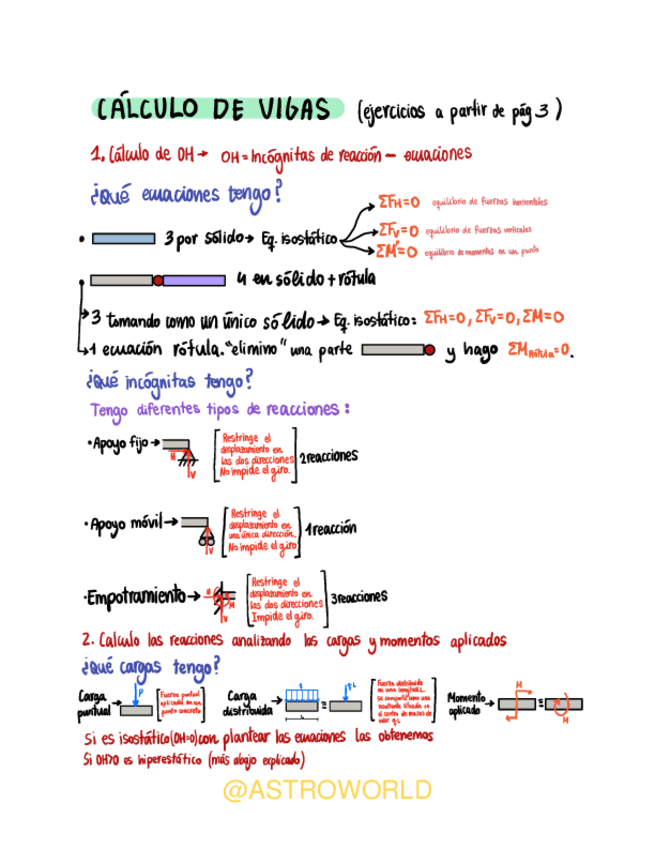 CÁLCULO DE VIGAS (ejercicios a partir de pág 3)
1. Cálculo de OH → OH = Incógnitas de reacción – ecuaciones
¿Qué ecuaciones tengo?
ΣFH=0 equilibrio de fuerzas horizontales
• 3 por sólido → Eq. isostático
ΣFV=0 equilibrio de fuerzas verticales
ΣM=0 equilibrio de momentos en un punto
• 4 en sólido + rótula
→3 tomando como un único sólido → Eq. isostático: ΣFH=0, ΣFV=0, ΣM=0
→1 ecuación rótula. "elimino" una parte y hago ΣMrótula=0.
¿Qué incógnitas tengo?
Tengo diferentes tipos de reacciones:
• Apoyo fijo → H V [Restringe el
desplazamiento en
las dos direcciones
No impide el giro.] 2 reacciones
• Apoyo móvil → V [Restringe el
desplazamiento en
una única dirección.
No impide el giro] 1 reacción
• Empotramiento → H M V [Restringe el
desplazamiento en
las dos direcciones
Impide el giro.] 3 reacciones
2. Calculo las reacciones analizando las cargas y momentos aplicados
¿Qué cargas tengo?
Carga puntual → P [Fuerza puntual
aplicada en un
punto concreto]
Carga distribuida → q L = q·L [Fuerza distribuida
en una longitud L.
se comporta como una
resultante situada en
el centro de masas de
valor q·L]
Momento aplicado → M = M
Si es isostático (OH=0) con plantear las ecuaciones las obtenemos
Si OH>0 es hiperestático (más abajo explicado)
@ASTROWORLD